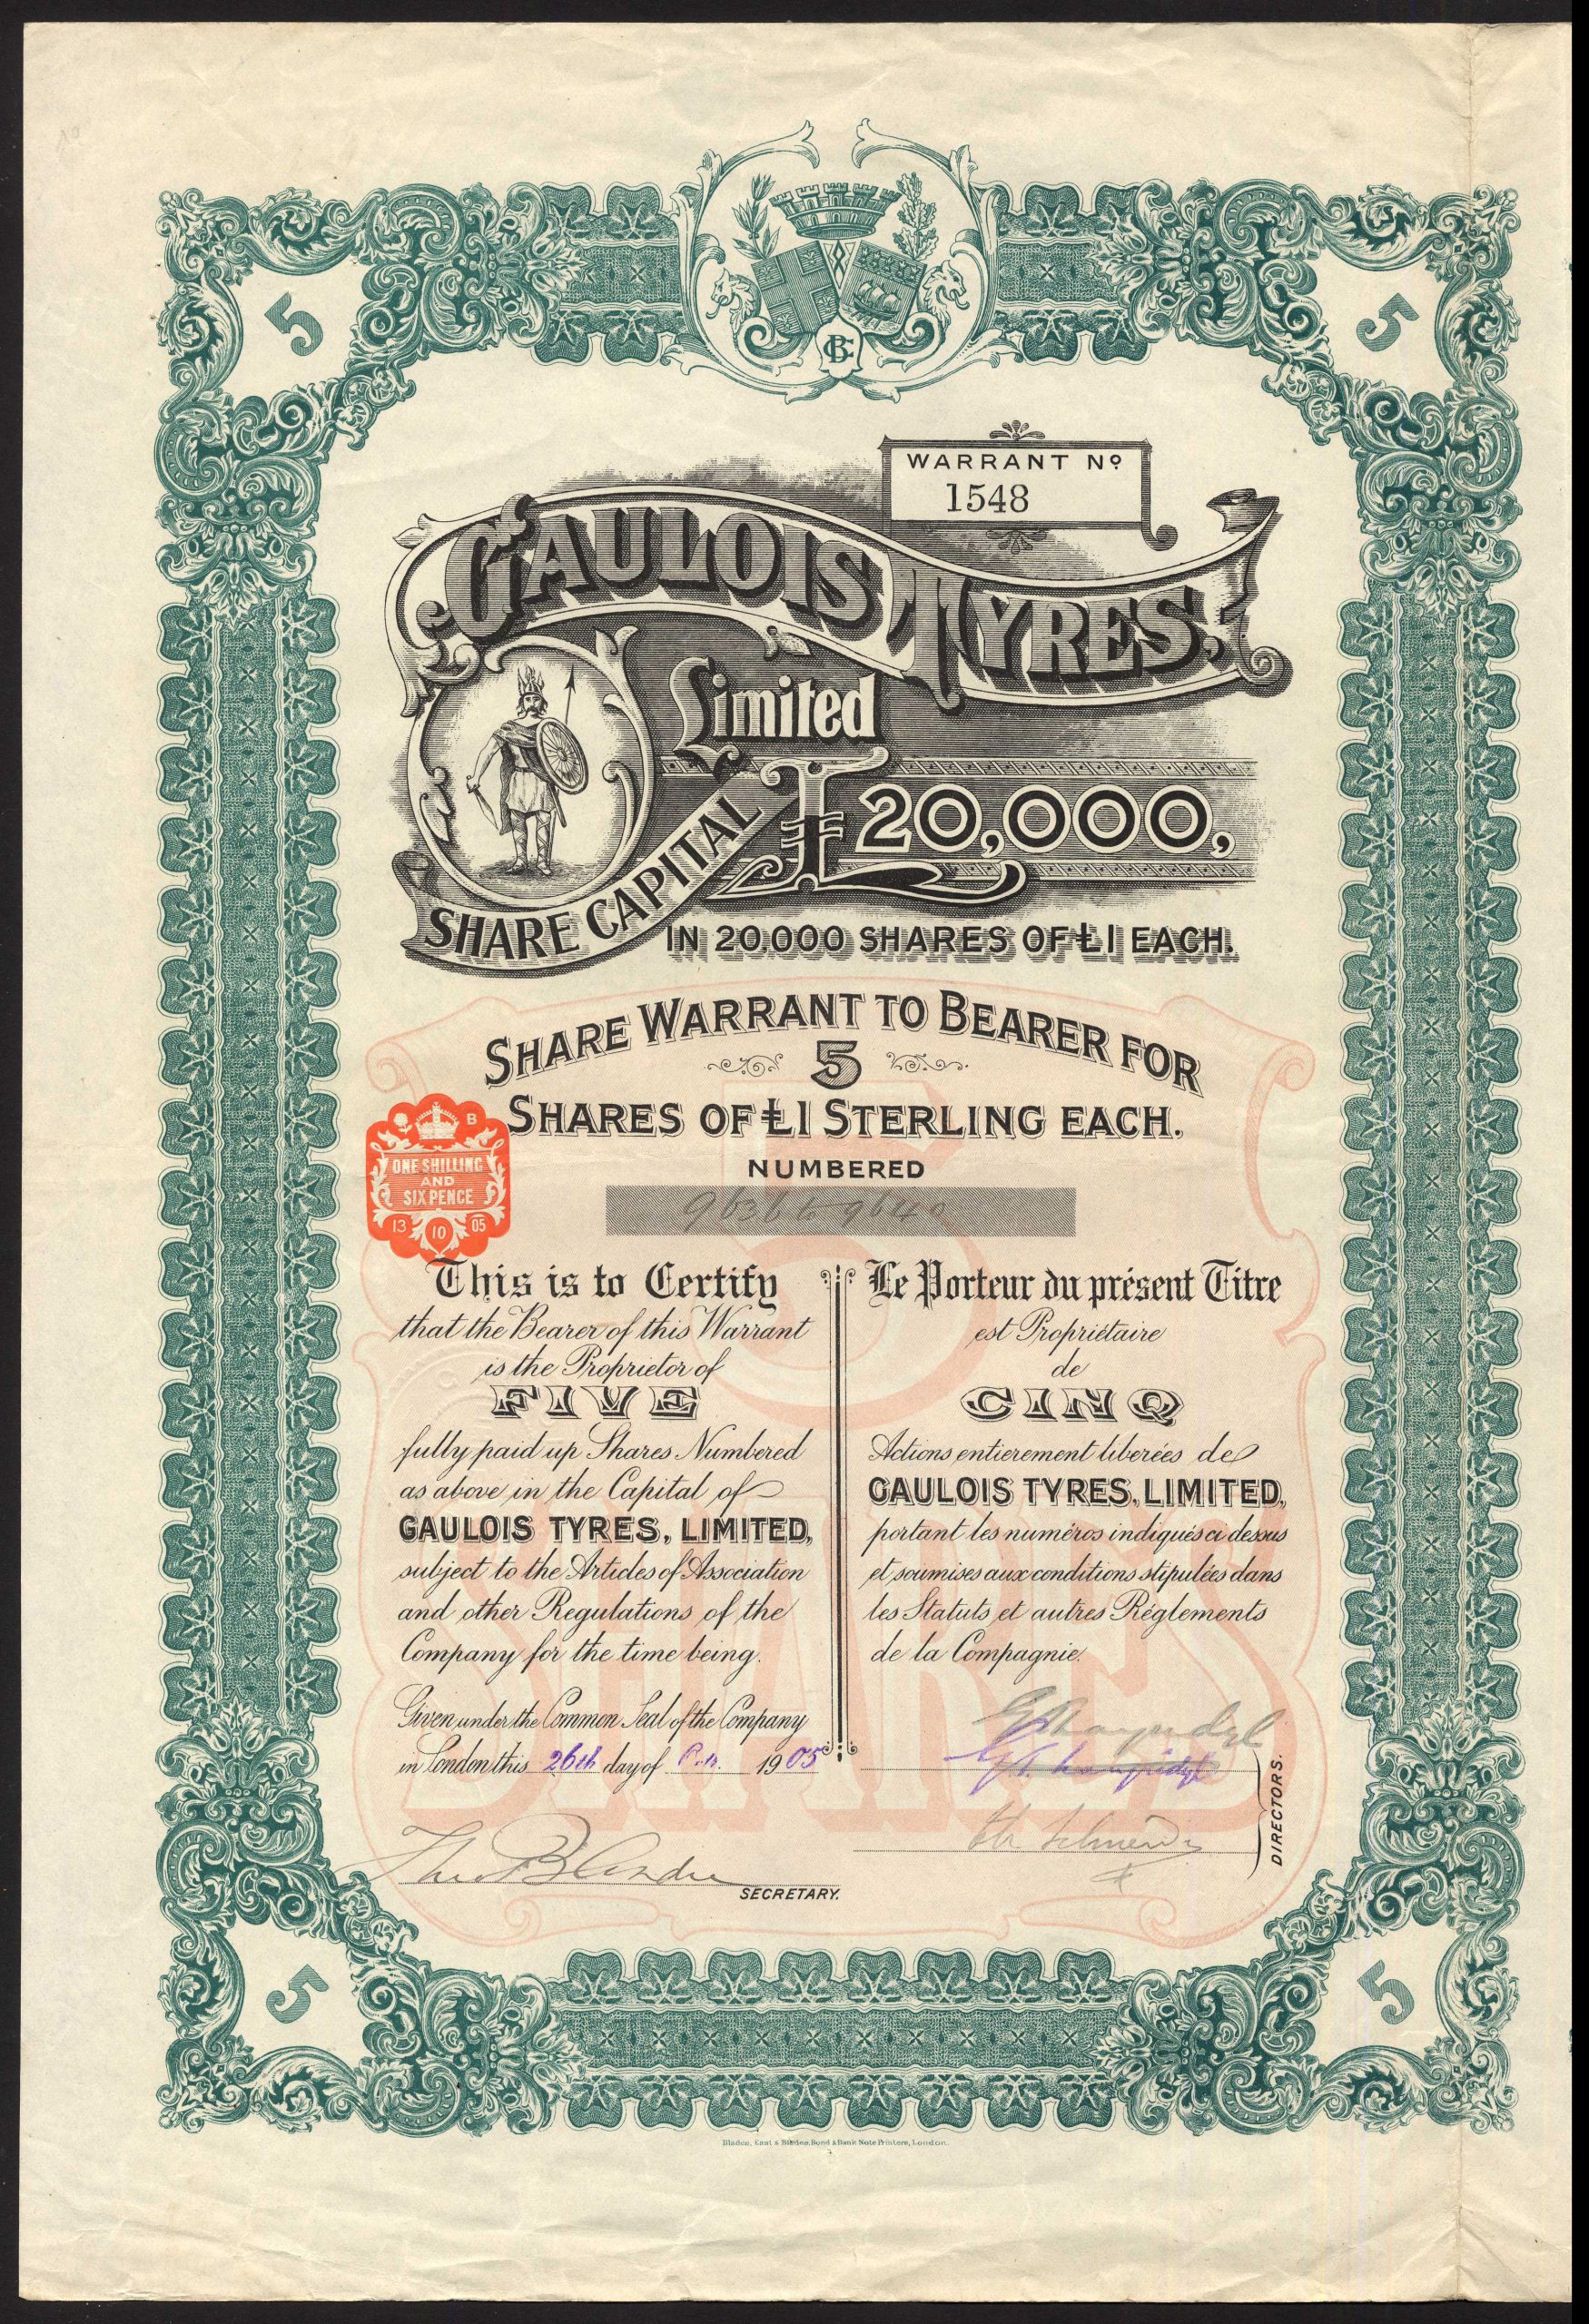 5
5
WARRANT Nº
1548
GAULOIS TYRES.
Limited
SHARE CAPITAL £20,000,
IN 20.000 SHARES OF £1 EACH.
SHARE WARRANT TO BEARER FOR
5
SHARES OF £1 STERLING EACH.
B
ONE SHILLING
AND
SIX PENCE
13 10 05
NUMBERED
9636 to 9640
This is to Certify
that the Bearer of this Warrant
is the Proprietor of
FIVE
fully paid up Shares Numbered
as above in the Capital of
GAULOIS TYRES, LIMITED,
subject to the Articles of Association
and other Regulations of the
Company for the time being.
Given under the Common Seal of the Company
in London this 26th day of Octr. 1905
SECRETARY.
Le Porteur du présent Titre
est Propriétaire
de
CINQ
Actions entierement liberées de
GAULOIS TYRES, LIMITED,
portant les numéros indiqués ci dessus
et soumises aux conditions stipulées dans
les Statuts et autres Réglements
de la Compagnie.
DIRECTORS.
5 SHARES
5
5
Blades, East & Blades, Bond & Bank Note Printers, London.